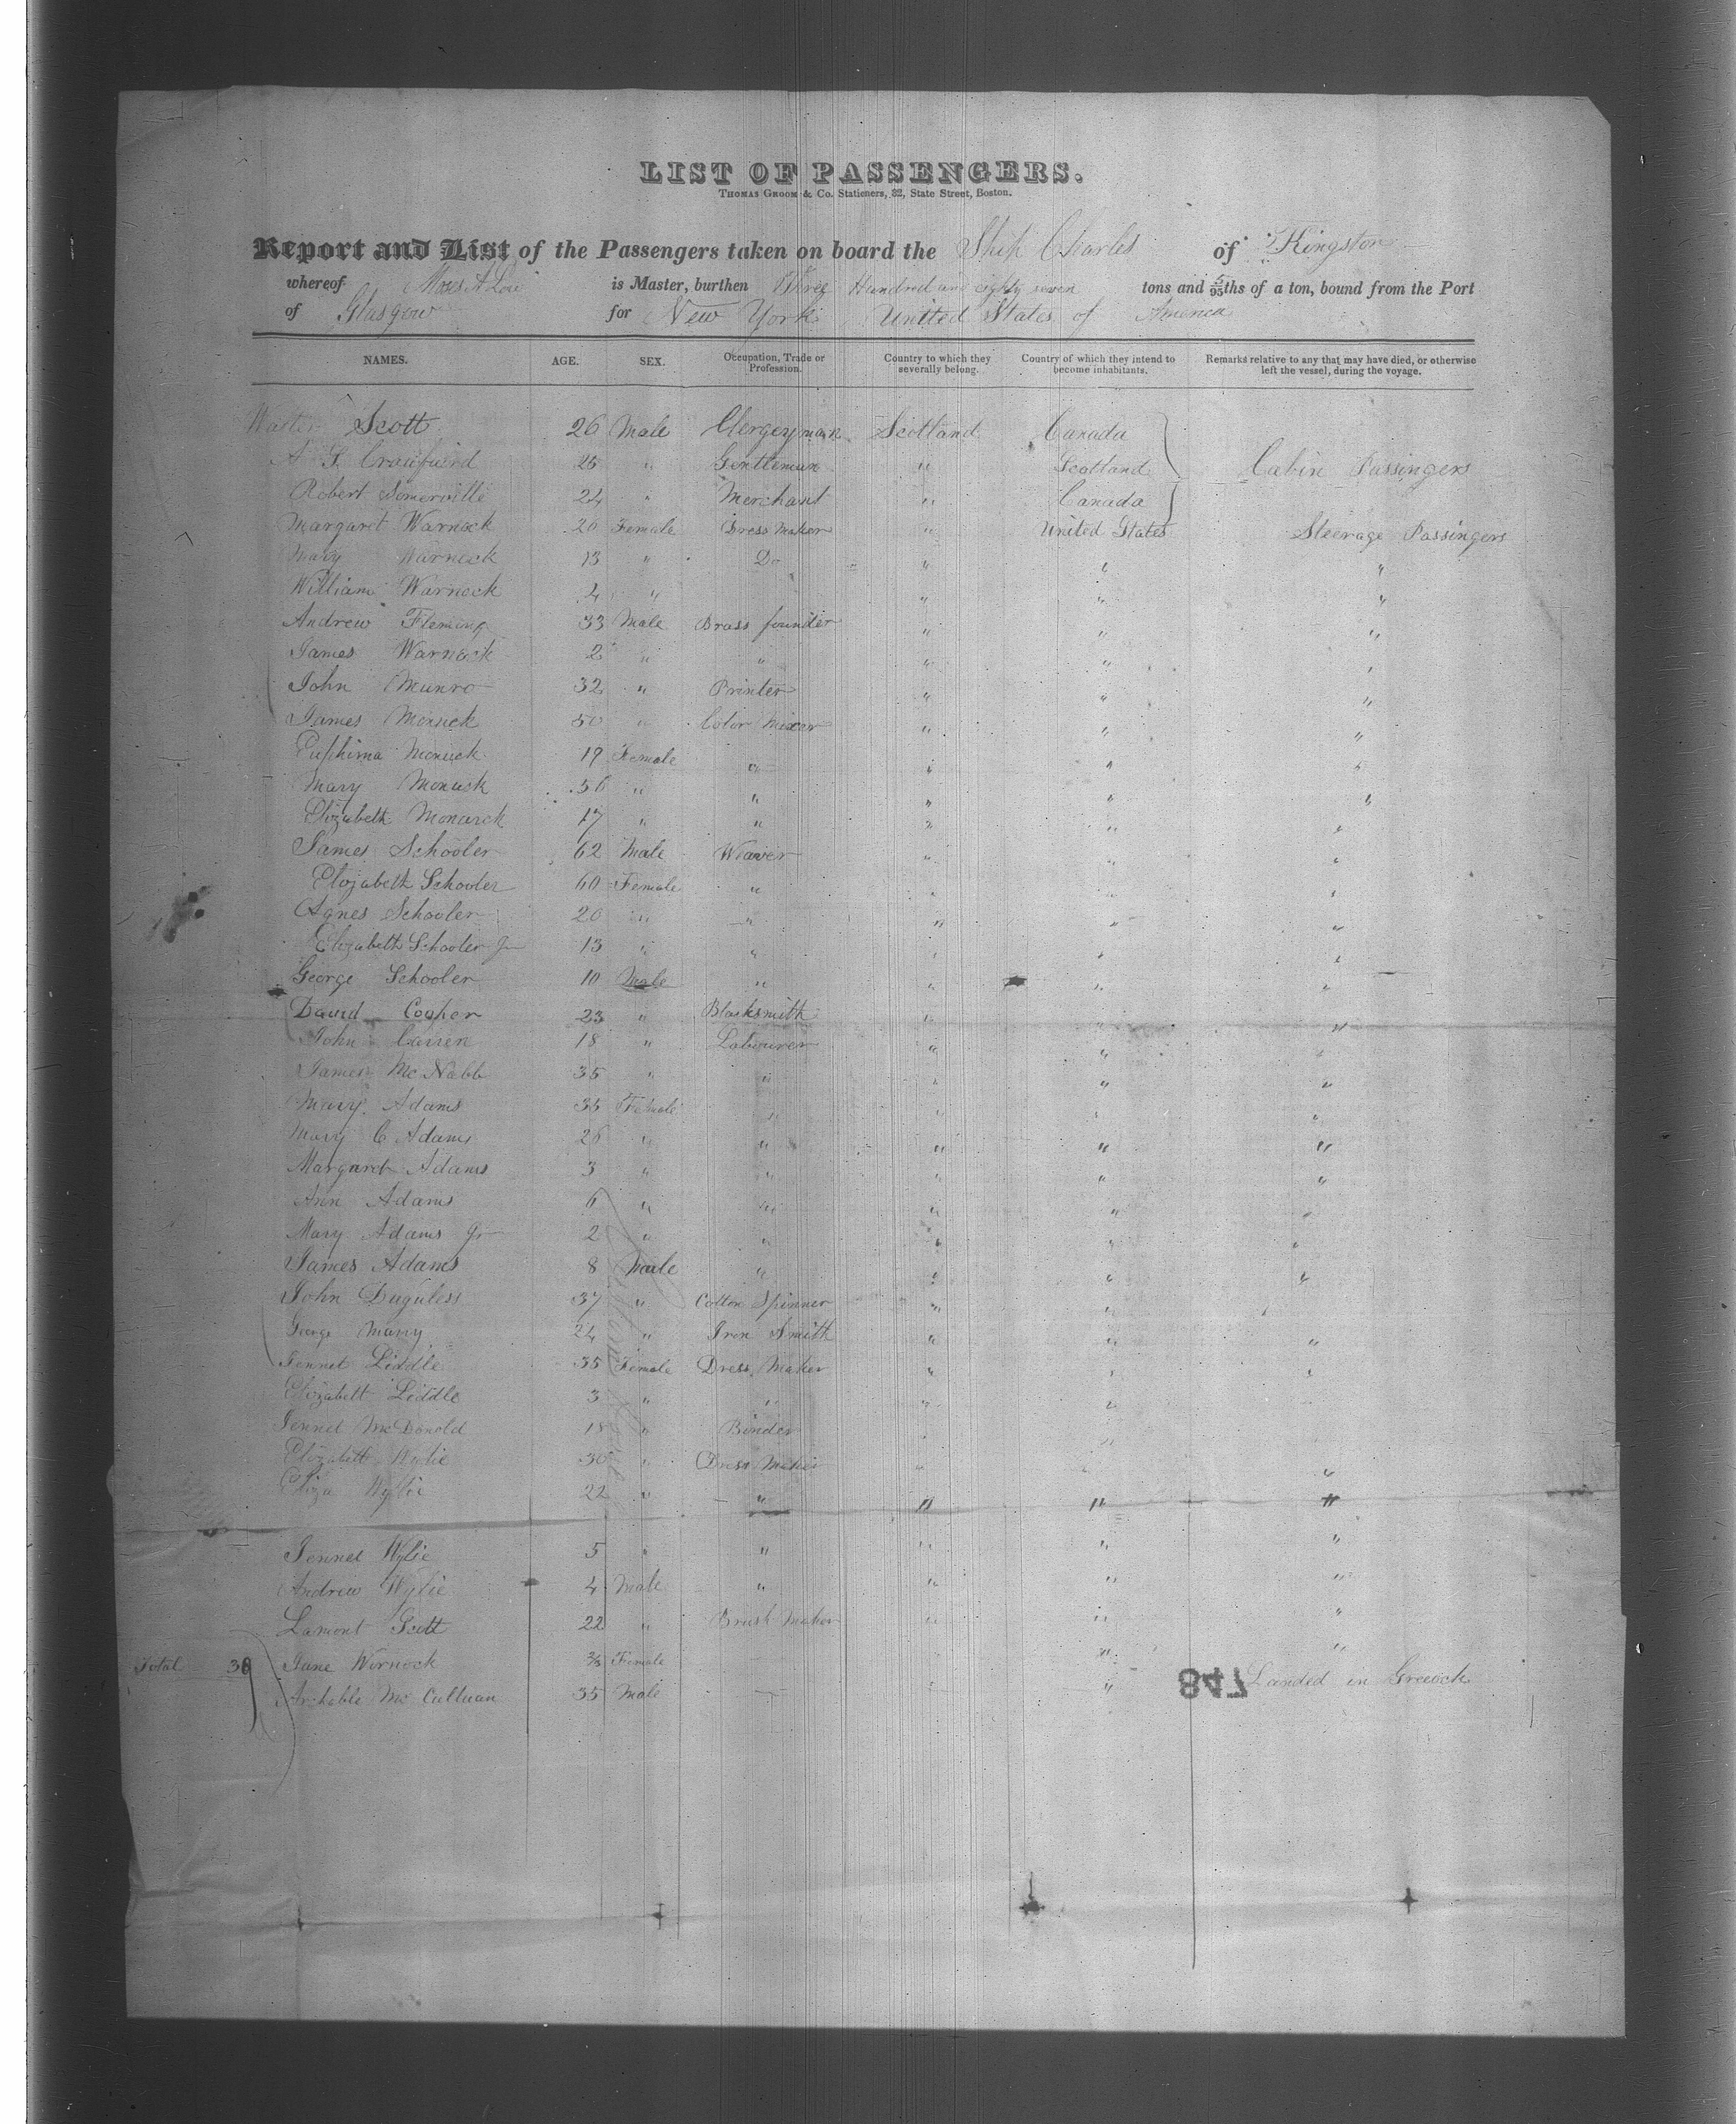 LIST OF PASSENGERS.
THOMAS GROOM & Co. Stationers, 82, State Street, Boston.
Report and List of the Passengers taken on board the Ship Charles of Kingston
whereof Moses A Low is Master, burthen Three Hundred and eighty seven tons and 5/95ths of a ton, bound from the Port
of Glasgow for New York United States of America
NAMES. AGE. SEX. Occupation, Trade or Profession. Country to which they severally belong. Country of which they intend to become inhabitants. Remarks relative to any that may have died, or otherwise left the vessel, during the voyage.
Scott 26 Male Clergeyman Scotland Canada
A G Craufuird 25 " Gentleman " Scotland Cabin Passingers
Robert Somerville 24 " Merchant " Canada
Margaret Warnock 20 Female Dress Maker " United States Steerage Passingers
Mary Warnock 13 " Do " " "
William Warnock 4 " " " "
Andrew Fleming 33 Male Brass founder " " "
James Warnock 2 " " " " "
John Munro 32 " Printer " " "
James Monuck 50 " Color Mixer " " "
Euphima Monuck 19 Female " " " "
Mary Monuck 56 " " " " "
Elizabeth Monarck 17 " " " " "
James Schooler 62 Male Weaver " " "
Elizabeth Schooler 60 Female " " " "
Agnes Schooler 20 " " " " "
Elizabeth Schooler Jr 13 " " " " "
George Schooler 10 Male " " " "
David Cooper 23 " Blacksmith " " "
John Carren 18 " Labourer " " "
James McNabb 35 " " " " "
Mary Adams 35 Female " " " "
Mary C Adams 26 " " " " "
Margaret Adams 3 " " " " "
Ann Adams 6 " " " " "
Mary Adams Jr 2 " " " " "
James Adams 8 Male " " " "
John Duguless 37 " Cotton Spinner " "
George Many 24 " Iron Smith " " "
Jennet Liddle 35 Female Dress Maker " " "
Elizabett Liddle 3 " " " "
Jennet McDonald 18 " Binder " "
Elizabett Wylie 30 " Dress Maker " " "
Eliza Wylie 22 " " " " "
Jennet Wylie 5 " " " " "
Andrew Wylie 4 Male " " " "
Lamont Scott 22 " Brush Maker " " "
Total 38 Jane Wornock Female " "
Archable McCulluan 35 Male " " Landed in Greeock
847